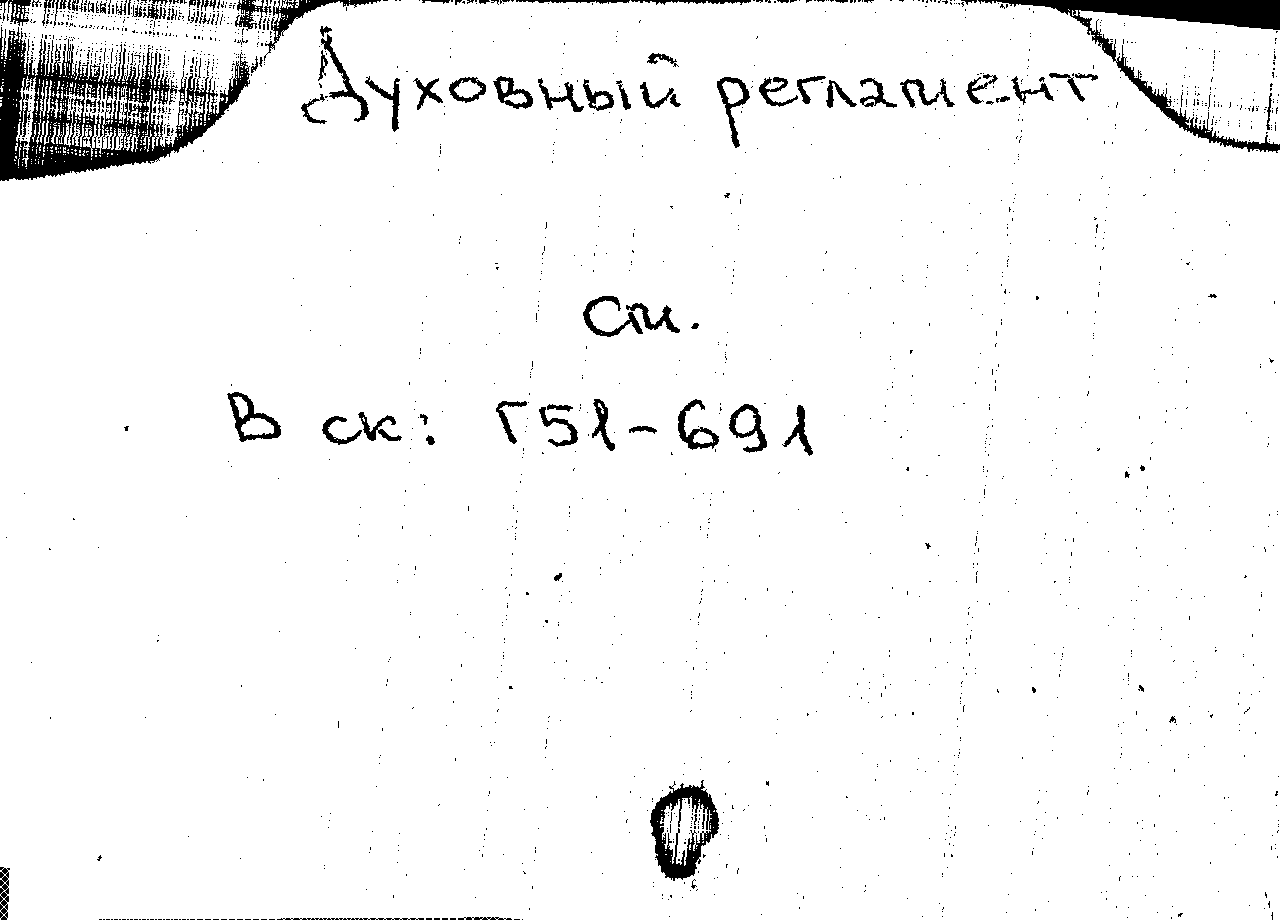 Духовный регламент
См.
В ск: Г51-691